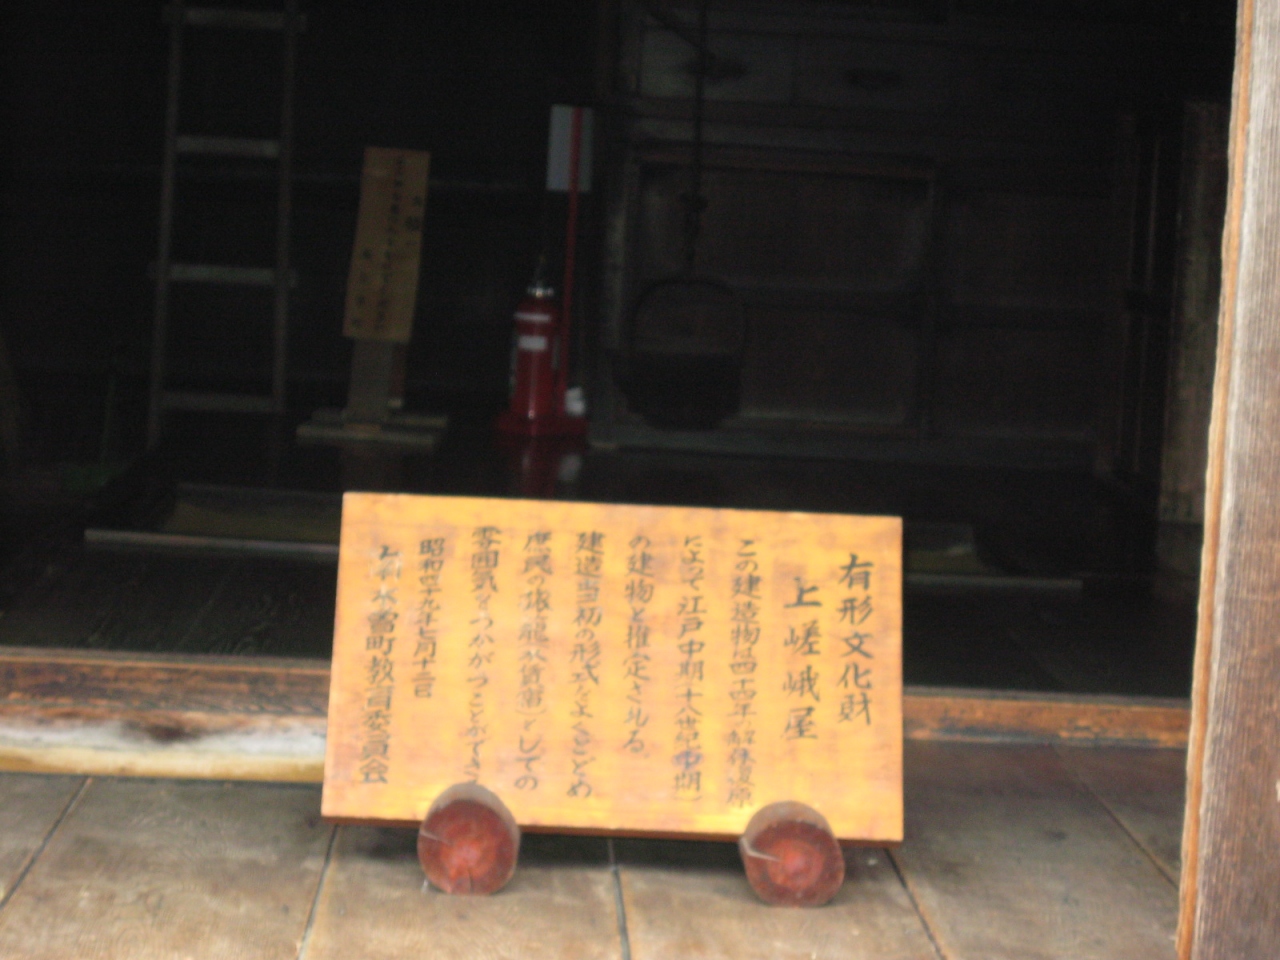 有形文化財
上嵯峨屋
この建造物は四十四年解体復原
によって江戸中期(十八世紀中期)
の建物と推定される
建造当初の形式をよくとどめ
庶民の旅籠(木賃宿)としての
雰囲気をつかがうことができる
昭和四十九年七月十二日
木曽町教育委員会